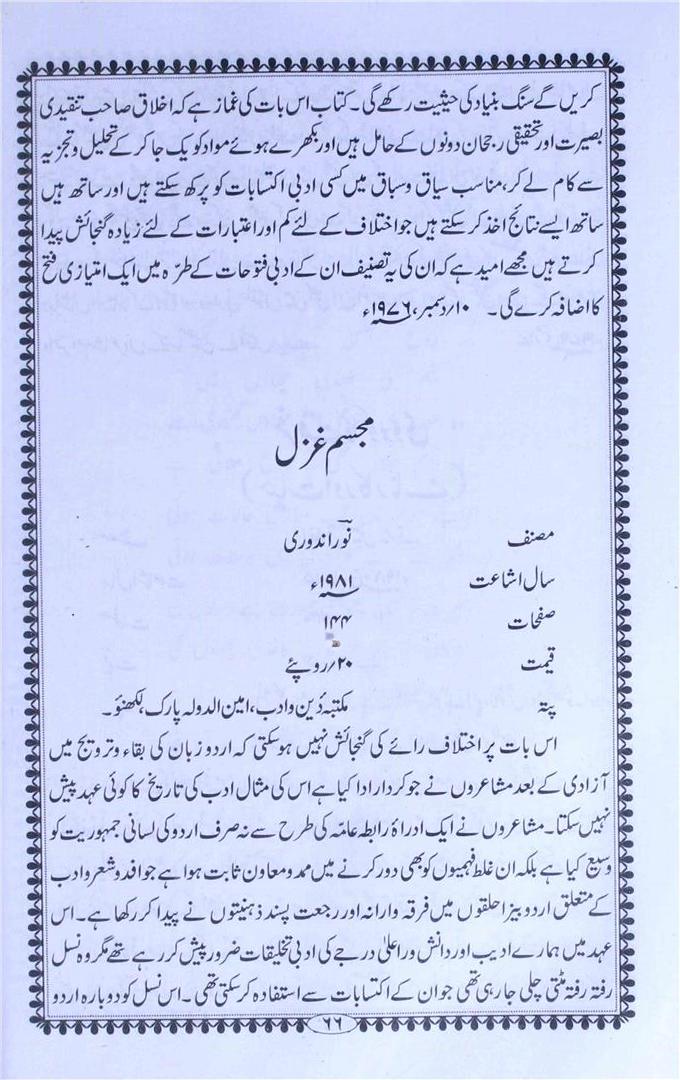 کریں گے سنگ بنیاد کی حیثیت رکھے گی۔ کتاب اس بات کی غماز ہے کہ اخلاق صاحب تنقیدی
بصیرت اور تحقیقی رجحان دونوں کے حامل ہیں اور بکھرے ہوئے مواد کو یک جا کر کے تحلیل و تجزیہ
سے کام لے کر، مناسب سیاق و سباق میں کسی ادبی اکتسابات کو پرکھ سکتے ہیں اور ساتھ ہیں
ساتھ ایسے نتائج اخذ کر سکتے ہیں جو اختلاف کے لئے کم اور اعتبارات کے لئے زیادہ گنجائش پیدا
کرتے ہیں مجھے امید ہے کہ ان کی یہ تصنیف ان کے ادبی فتوحات کے طرّہ میں ایک امتیازی فتح
کا اضافہ کرے گی۔ ۱۰؍دسمبر، ۱۹۷۶ء
مجسم غزل
مصنف نور اندوری
سال اشاعت ۱۹۸۱ء
صفحات ۱۴۴
قیمت ۲۰؍روپئے
پتہ مکتبہ دین و ادب، امین الدولہ پارک، لکھنؤ۔
اس بات پر اختلاف رائے کی گنجائش نہیں ہو سکتی کہ اردو زبان کی بقاء و ترویج میں
آزادی کے بعد مشاعروں نے جو کردار ادا کیا ہے اس کی مثال ادب کی تاریخ کا کوئی عہد پیش
نہیں سکتا۔ مشاعروں نے ایک ادراۂ رابطہ عامّہ کی طرح سے نہ صرف اردو کی لسانی جمہوریت کو
وسیع کیا ہے بلکہ ان غلط فہمیوں کو بھی دور کرنے میں ممد و معاون ثابت ہوا ہے جو افدو شعر و ادب
کے متعلق اردو بیزار حلقوں میں فرقہ وارانہ اور رجعت پسند ذہنیتوں نے پیدا کر رکھا ہے۔ اس
عہد میں ہمارے ادیب اور دانش ور اعلیٰ درجے کی ادبی تخلیقات ضرور پیش کر رہے تھے مگر وہ نسل
رفتہ رفتہ مٹتی چلی جا رہی تھی جو ان کے اکتسابات سے استفادہ کر سکتی تھی۔ اس نسل کو دوبارہ اردو
۶۶